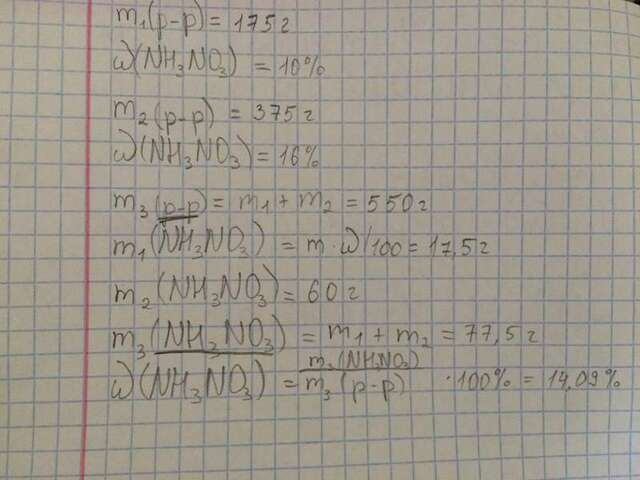 m₁(р-р) = 175 г
ω(NH₃NO₃) = 10%
m₂(р-р) = 375 г
ω(NH₃NO₃) = 16%
m₃(р-р) = m₁ + m₂ = 550 г
m₁(NH₃NO₃) = m · ω/100 = 17,5 г
m₂(NH₃NO₃) = 60 г
m₃(NH₃NO₃) = m₁ + m₂ = 77,5 г
ω(NH₃NO₃) = m₃(NH₃NO₃)/m₃(р-р) · 100% = 14,09%